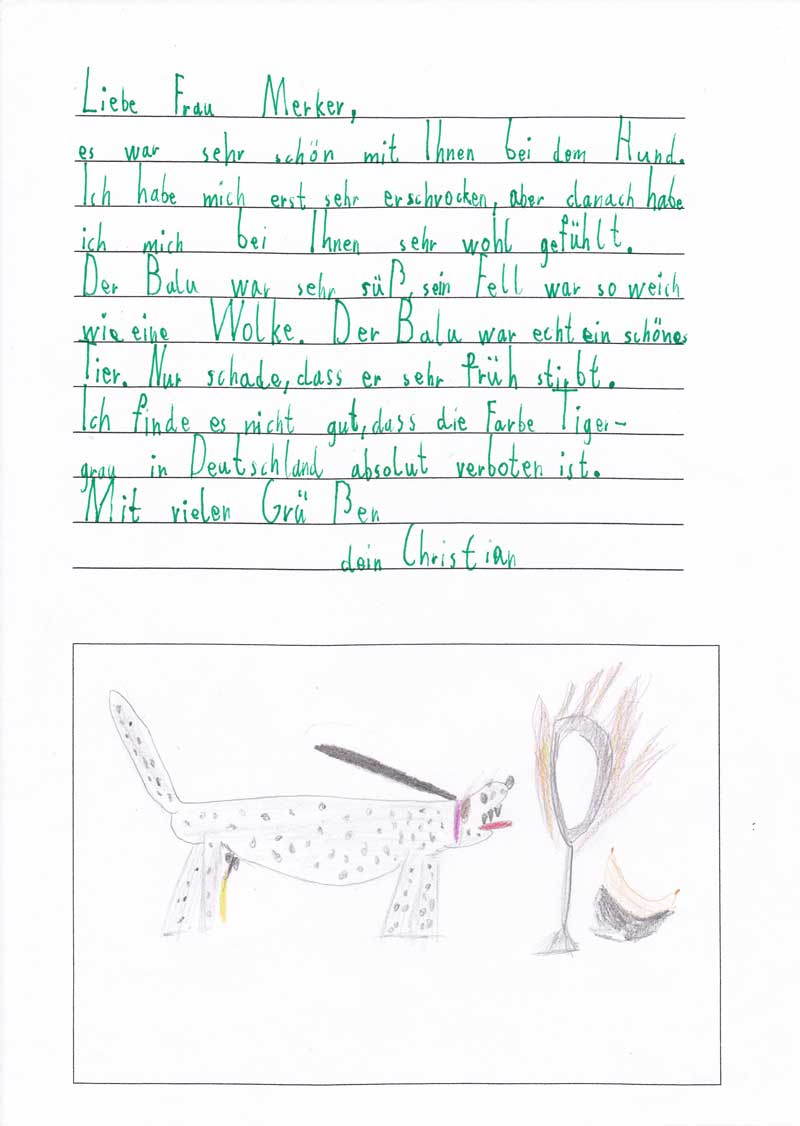 Liebe Frau Merker,
es war sehr schön mit Ihnen bei dem Hund.
Ich habe mich erst sehr erschrocken, aber danach habe
ich mich bei Ihnen sehr wohl gefühlt.
Der Balu war sehr süß, sein Fell war so weich
wie eine Wolke. Der Balu war echt ein schönes
Tier. Nur schade, dass er sehr früh stirbt.
Ich finde es nicht gut, dass die Farbe Tiger-
grau in Deutschland absolut verboten ist.
Mit vielen Grü ßen
dein Christian